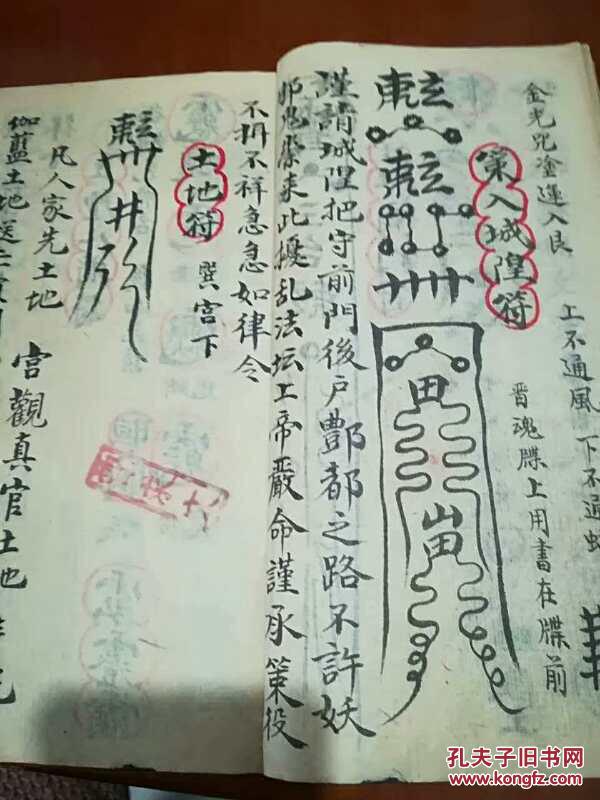 金光咒塗蓮入艮
上不通風 下不通
晋魂牒上用書在牒前
策入城隍符
田
山
田
謹請城隍把守前門後戶酆都之路不許妖
邪鬼祟来此擾乱法坛上帝嚴命謹承策役
不祥急急如律令
土地符
巽宮下
井
凡人家先土地 宮觀真官土地
伽藍土地
孔夫子旧书网
www.kongfz.com